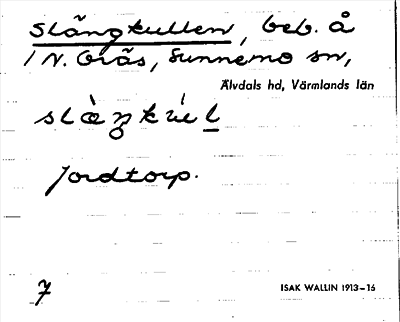 Slängkullen, beb. å
N. Gräs, Sunnemo sn,
Älvdals hd, Värmlands län
Jordtorp.
7
ISAK WALLIN 1913–16